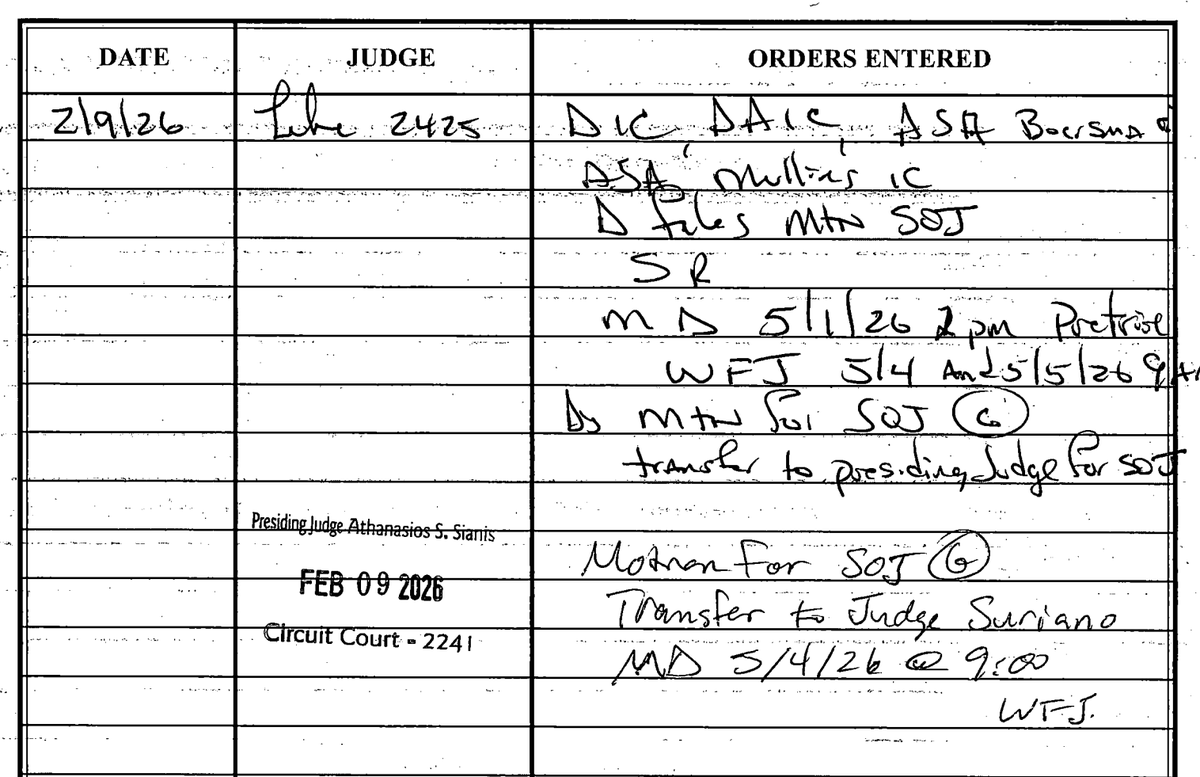 DATE JUDGE ORDERS ENTERED
2/9/26 2425 D IC, DAIC, ASA Boersma
ASA, Mullins IC
D files Mtn SOJ
SR
MD 5/1/26 2pm Pretrial
WFJ 5/4 And 5/5/26 9
Ds Mtn for SOJ G
transfer to presiding Judge for SOJ
Presiding Judge Athanasios S. Sianis
FEB 09 2026
Circuit Court - 2241
Motion For SOJ G
Transfer to Judge Suriano
MD 5/4/26 @ 9:00
WFJ.